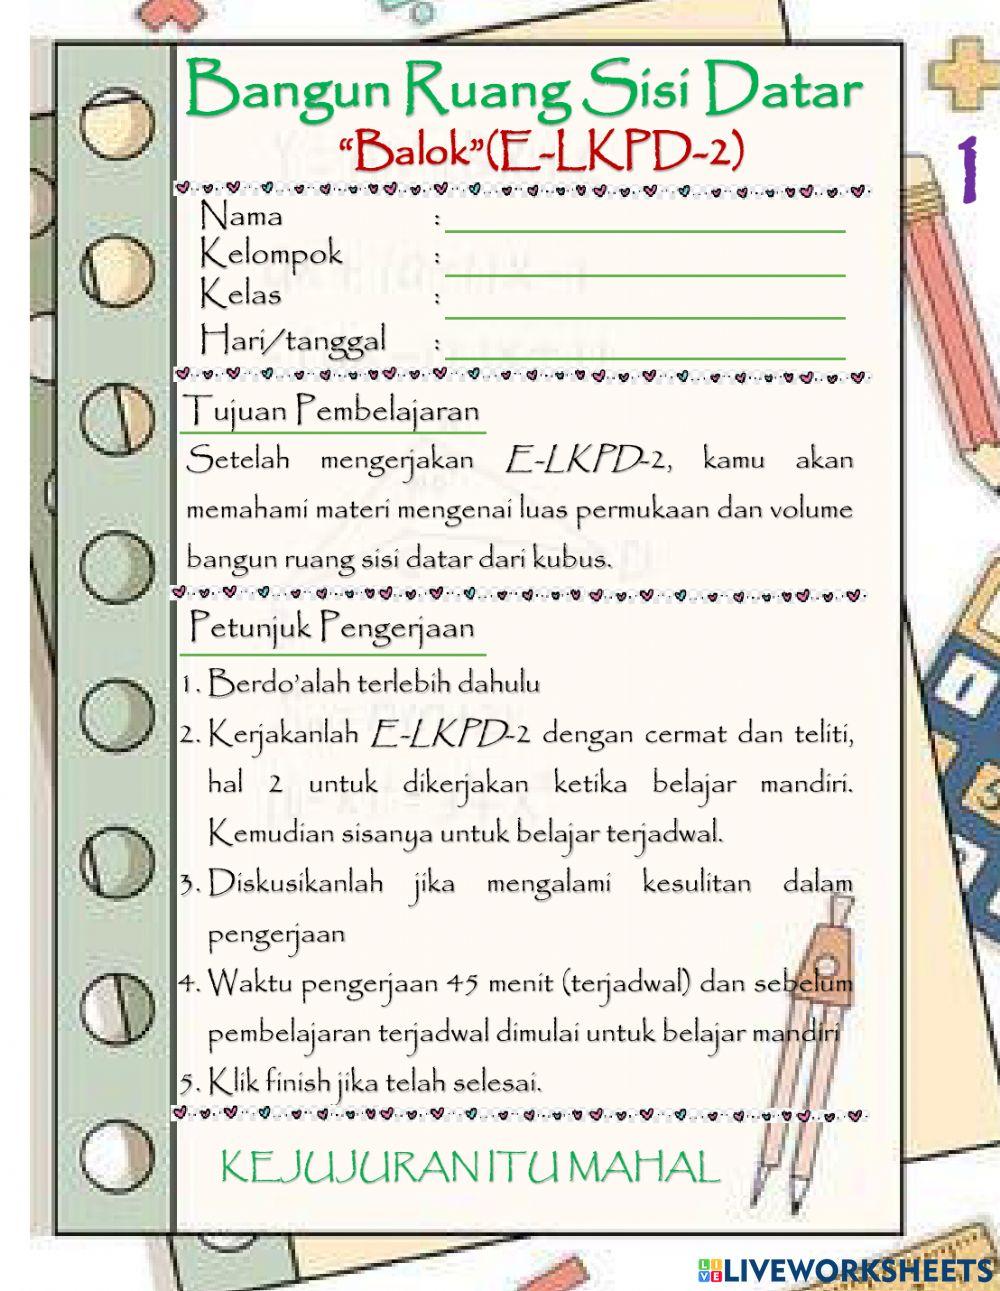 Bangun Ruang Sisi Datar
“Balok”(E-LKPD-2)
1
Nama :
Kelompok :
Kelas :
Hari/tanggal :
Tujuan Pembelajaran
Setelah mengerjakan E-LKPD-2, kamu akan
memahami materi mengenai luas permukaan dan volume
bangun ruang sisi datar dari kubus.
Petunjuk Pengerjaan
1. Berdo’alah terlebih dahulu
2. Kerjakanlah E-LKPD-2 dengan cermat dan teliti,
hal 2 untuk dikerjakan ketika belajar mandiri.
Kemudian sisanya untuk belajar terjadwal.
3. Diskusikanlah jika mengalami kesulitan dalam
pengerjaan
4. Waktu pengerjaan 45 menit (terjadwal) dan sebelum
pembelajaran terjadwal dimulai untuk belajar mandiri
5. Klik finish jika telah selesai.
KEJUJURAN ITU MAHAL
LIVE LIVEWORKSHEETS